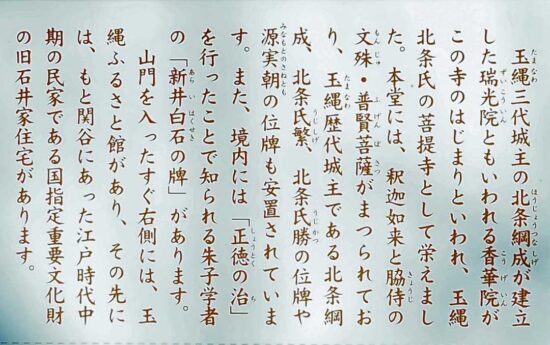 玉縄三代城主の北条綱成が建立
した瑞光院ともいわれる香華院が
この寺のはじまりといわれ、玉縄
北条氏の菩提寺として栄えまし
た。本堂には、釈迦如来と脇侍の
文殊・普賢菩薩がまつられてお
り、玉縄歴代城主である北条綱
成、北条氏繁、北条氏勝の位牌や
源実朝の位牌も安置されていま
す。また、境内には「正徳の治」
を行ったことで知られる朱子学者
の「新井白石の碑」があります。
山門を入ったすぐ右側には、玉
縄ふるさと館があり、その先に
は、もと関谷にあった江戸時代中
期の民家である国指定重要文化財
の旧石井家住宅があります。